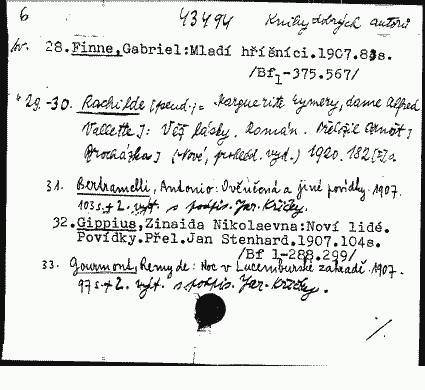 6 43494 Knihy dobrých autorů
sv. 28. Finne, Gabriel: Mladí hříšníci. 1907. 83s.
/Bf1-375.567/
" 29.-30. Rachilde [pseud.] = Marguerite Eymery, dame Alfred
Vallette]: Věž lásky. Román. Přeložil Arnošt
Procházka] (Nové, prohléd. vyd.) 1920. 182 s.
31. Bertramelli, Antonio: Ověnčená a jiné povídky. 1907.
103s.+2. výt. s podpis. Jar. Kříčky.
32. Gippius, Zinaida Nikolaevna: Noví lidé.
Povídky. Přel. Jan Stenhard. 1907. 104s.
/Bf 1-288.299/
33. Gourmont, Remy de: Noc v Lucemburské zahradě. 1907.
97s.+2. výt. s podpis. Jar. Kříčky.
./.